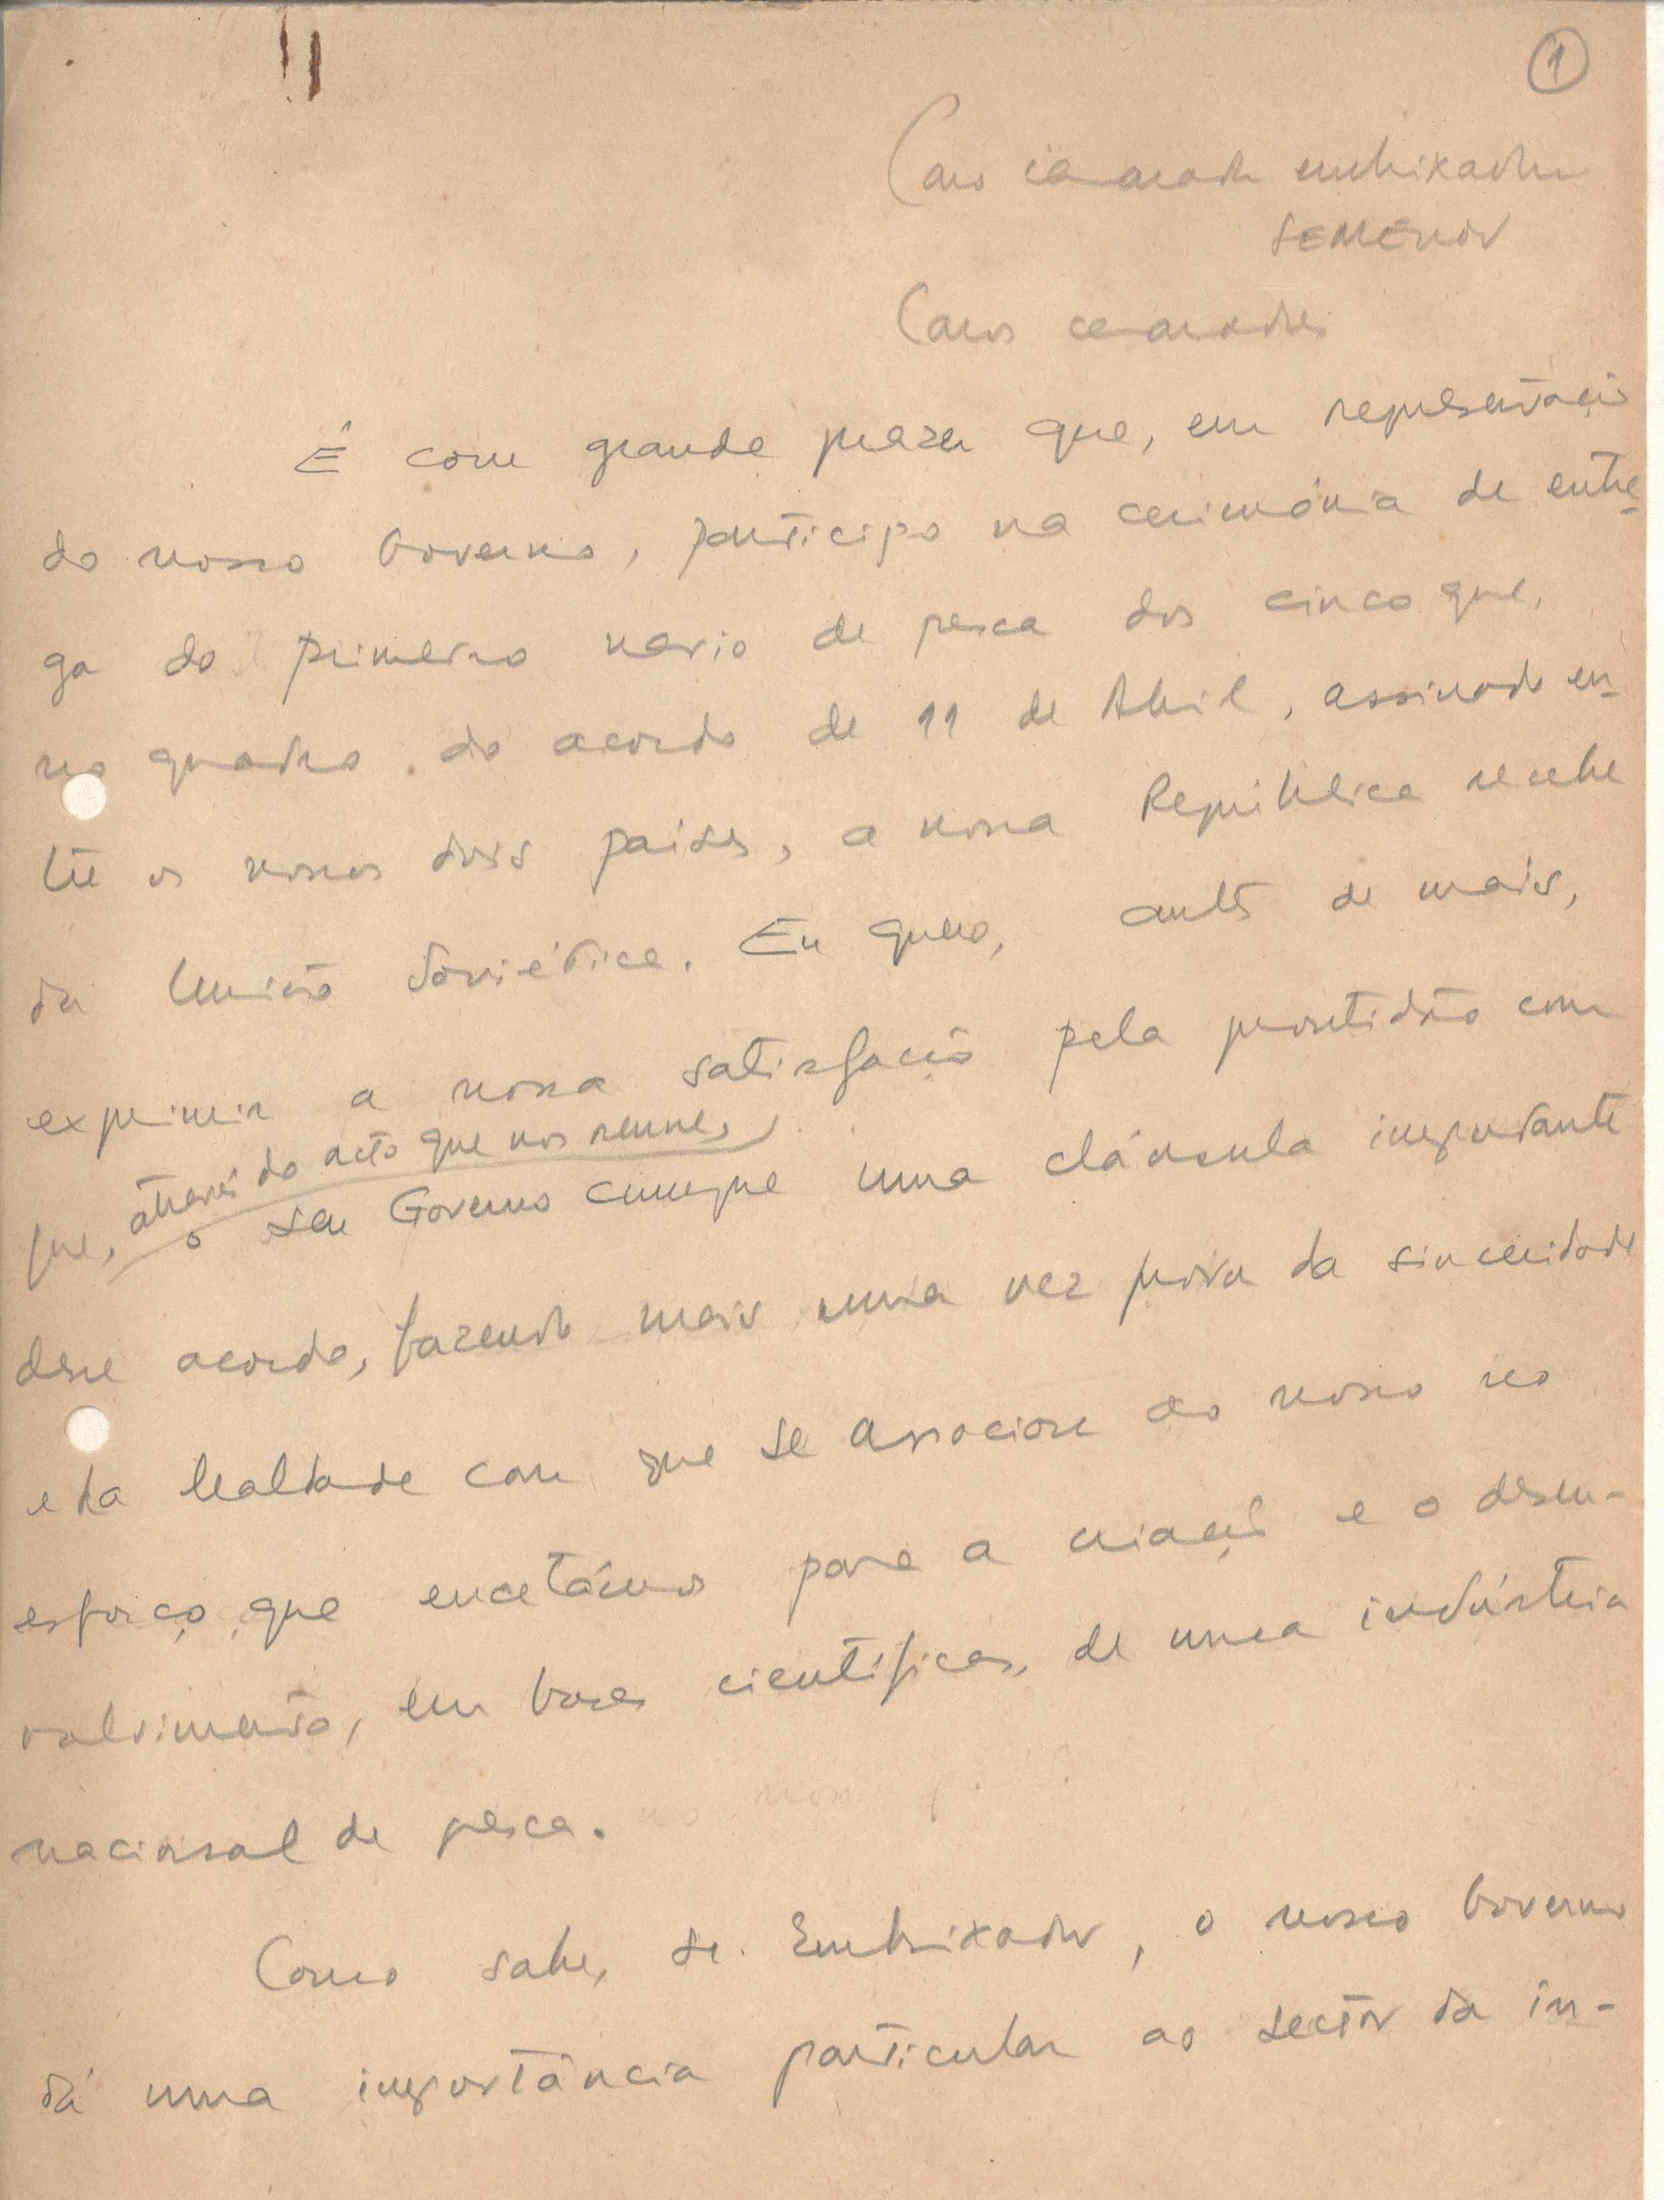 1
Caro camarada embaixador
SEMENOV
Caros camaradas
É com grande prazer que, em representação
do nosso Governo, participo na cerimónia de entre-
ga do primeiro navio de pesca dos cinco que,
no quadro do acordo de 11 de Abril, assinado en-
tre os nossos dois países, a nossa República recebe
da União Soviética. Eu quero, antes de mais,
exprimir a nossa satisfação pela prontidão com
que, através do acto que nos reune,
o seu Governo cumpre uma cláusula importante
desse acordo, fazendo mais uma vez prova da sinceridade
e da lealdade com que se associou ao nosso no
esforço que encetámos para a criação e o desen-
volvimento, em bases científicas, de uma indústria
nacional de pesca.
Como sabe, sr. Embaixador, o nosso Governo
dá uma importância particular ao sector da in-